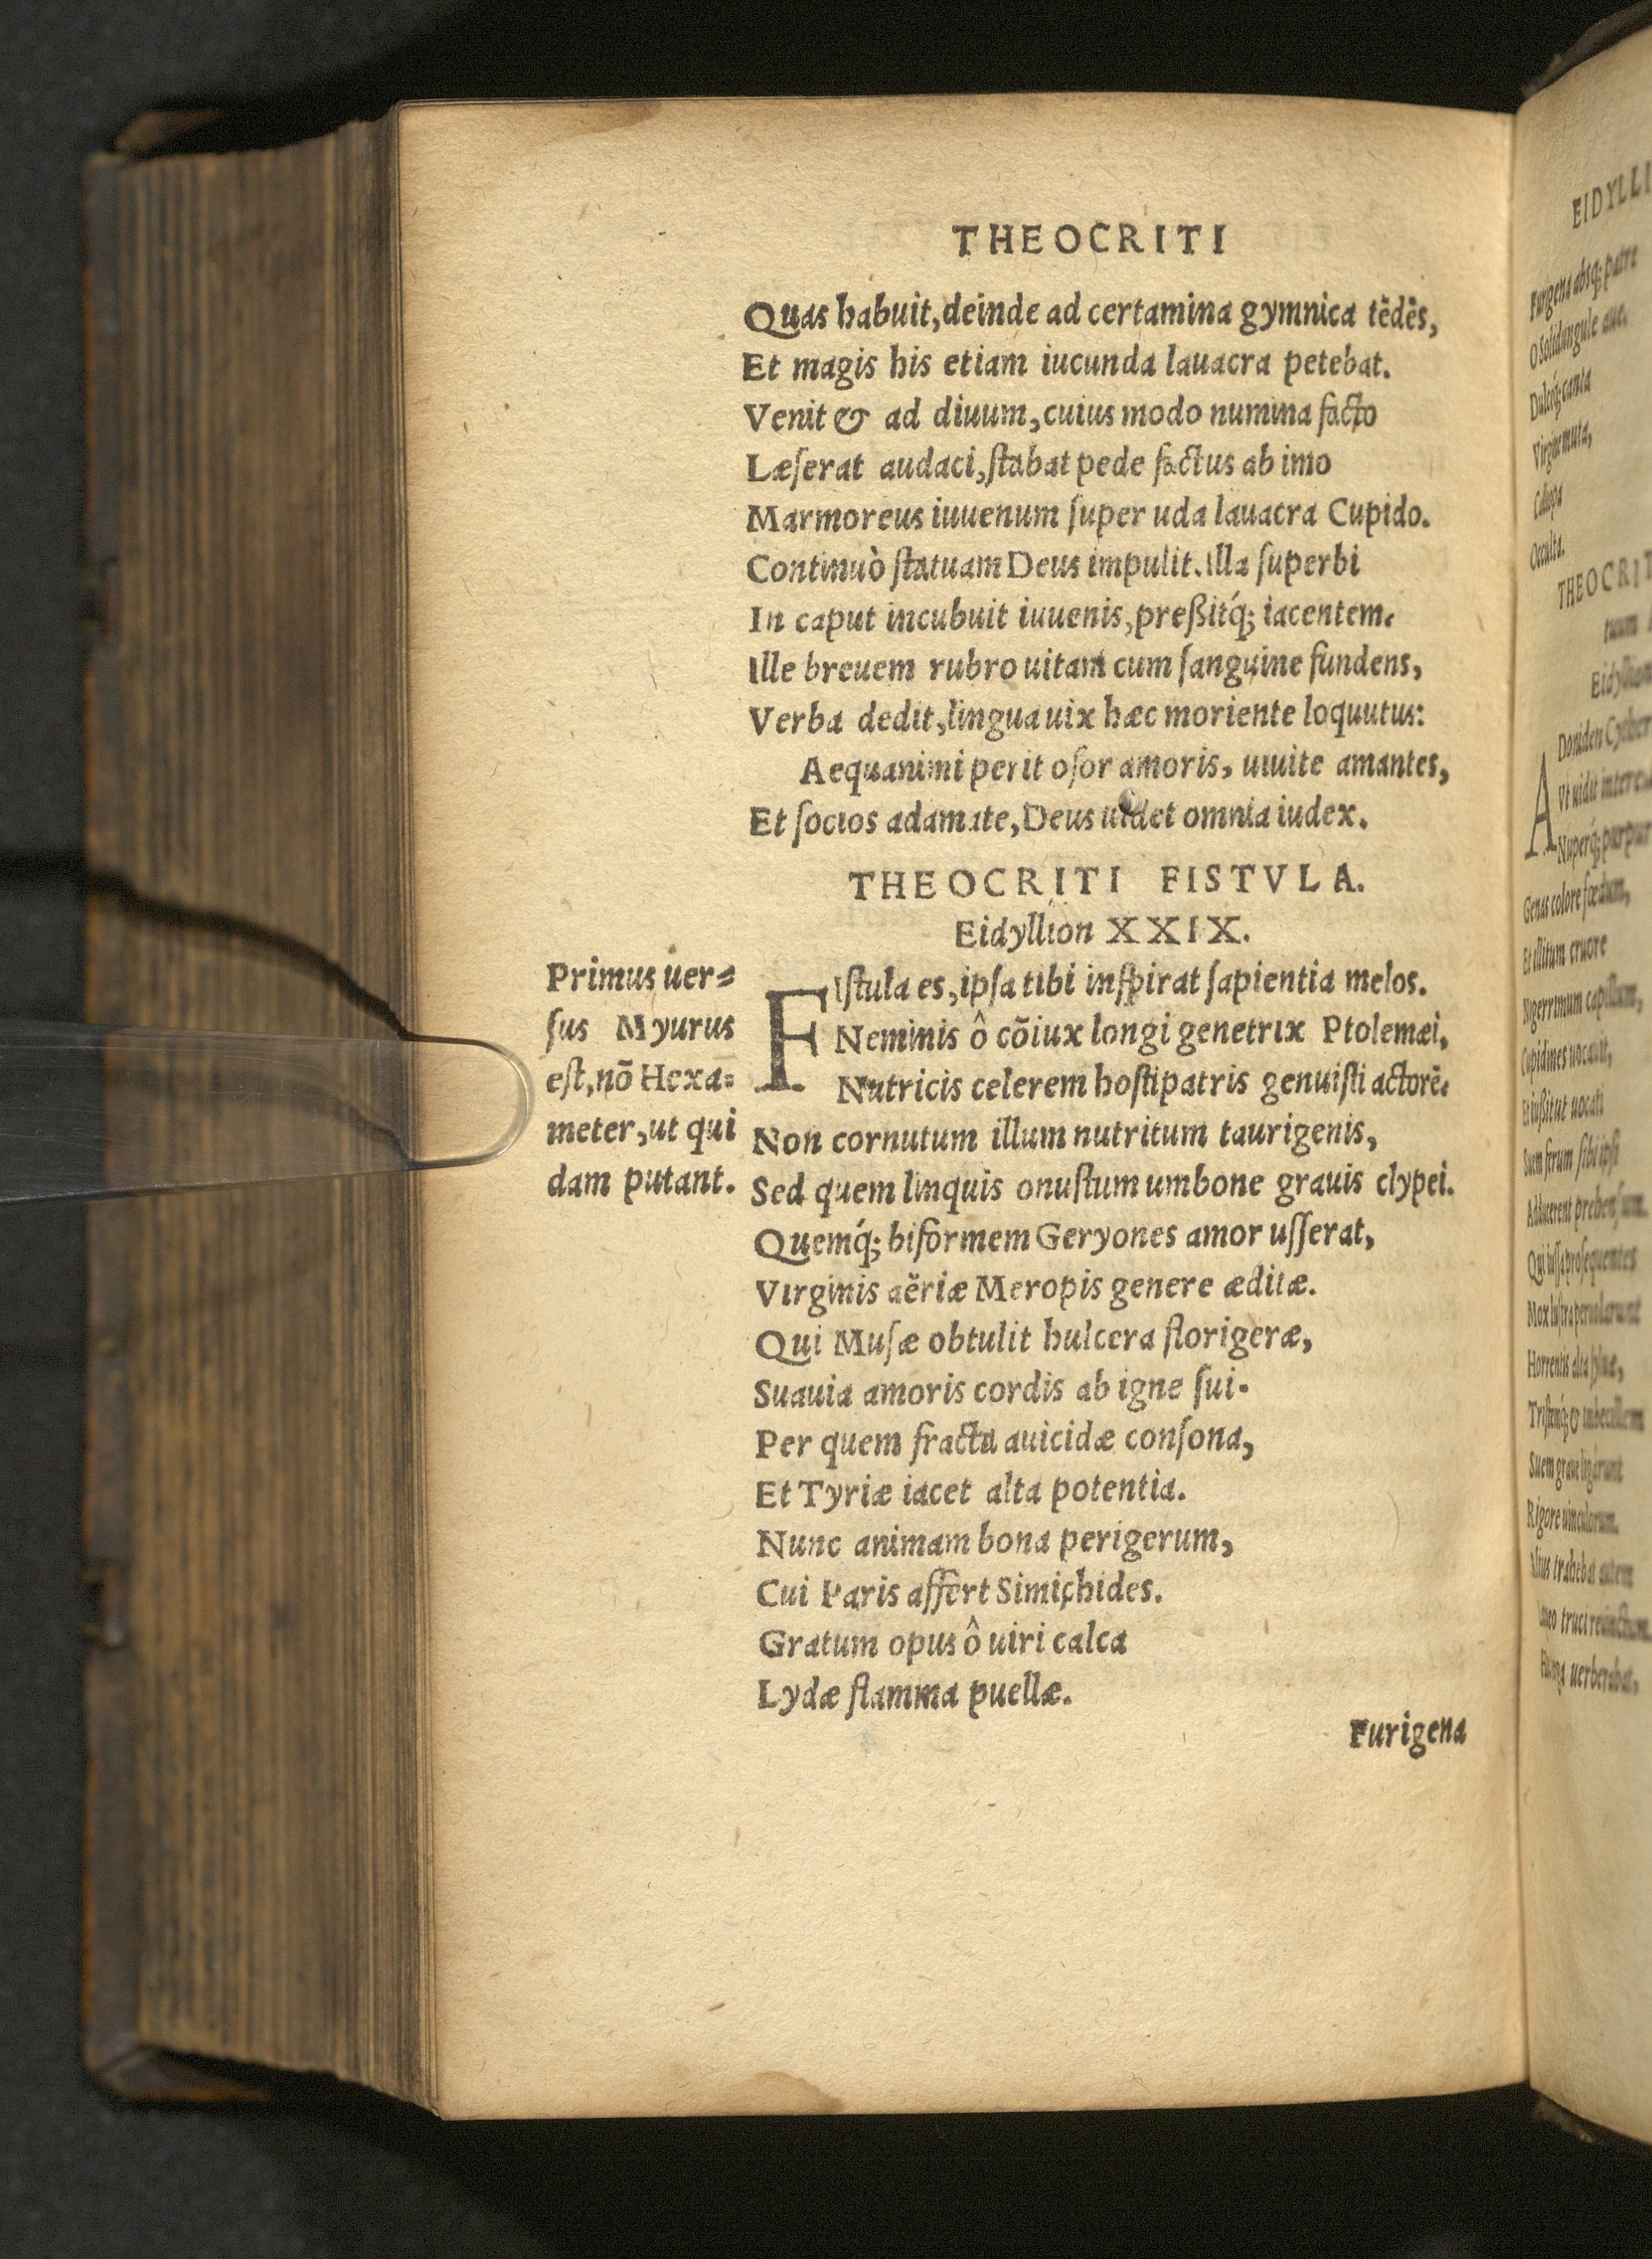 THEOCRITI
Quas habuit, deinde ad certamina gymnica tēdēs,
Et magis his etiam iucunda lauacra petebat.
Venit & ad diuum, cuius modo numina facto
Læſerat audaci, ſtabat pede factus ab imo
Marmoreus iuuenum ſuper uda lauacra Cupido.
Continuò ſtatuam Deus impulit. Illa ſuperbi
In caput incubuit iuuenis, preßitq́; iacentem.
Ille breuem rubro uitam cum ſanguine fundens,
Verba dedit, lingua uix hæc moriente loquutus:
Aequanimi perit oſor amoris, uiuite amantes,
Et ſocios adamate, Deus uidet omnia iudex.
THEOCRITI FISTVLA.
Eidyllion XXIX.
Primus uer-
ſus Myurus
eſt, nō Hexa-
meter, ut qui
dam putant.
FIſtula es, ipſa tibi inſpirat ſapientia melos.
Neminis ô cōiux longi genetrix Ptolemæi,
Nutricis celerem hoſtipatris genuiſti actorē.
Non cornutum illum nutritum taurigenis,
Sed quem linquis onuſtum umbone grauis clypei.
Quemq́; biformem Geryones amor uſſerat,
Virginis aëriæ Meropis genere æditæ.
Qui Muſæ obtulit hulcera florigeræ,
Suauia amoris cordis ab igne ſui.
Per quem fracta auicidæ conſona,
Et Tyriæ iacet alta potentia.
Nunc animam bona perigerum,
Cui Paris affert Simichides.
Gratum opus ô uiri calca
Lydæ flamma puellæ.
Furigena
EIDYLLI
Furigena absq; patre
O ſolidungule aue.
Dulcéq; canta
Virgine muta,
Caliopa
Occulta.
THEOCRIT
Eidyllion
ADoniden Cyther
Vt uidit
Nuperq́; purpur
Genas colore fœdum,
Et illitum cruore
Nigerrimum capillum,
Cupidines uocauit,
Et iußit ut uocati
Suem ferum ſibi ipſi
Adducerent prehenſum.
Qui iuſſa proſequentes
Mox luſtra peruolarunt
Horrentis alta ſyluæ,
Triſtemq́; & imbecillem
Suem graue ligarunt
Rigore uinculorum.